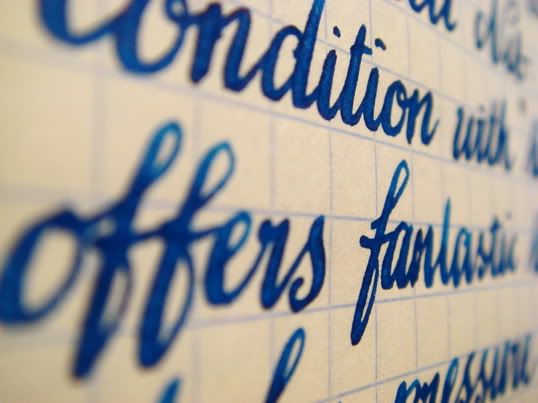 condition with
offers fantastic
pressure